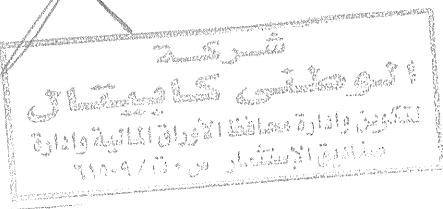 شركة
الوطني كابيتال
لتكوين وإدارة محافظ الأوراق المالية وإدارة
صناديق الإستثمار س.ت / ٦١٨٠٩